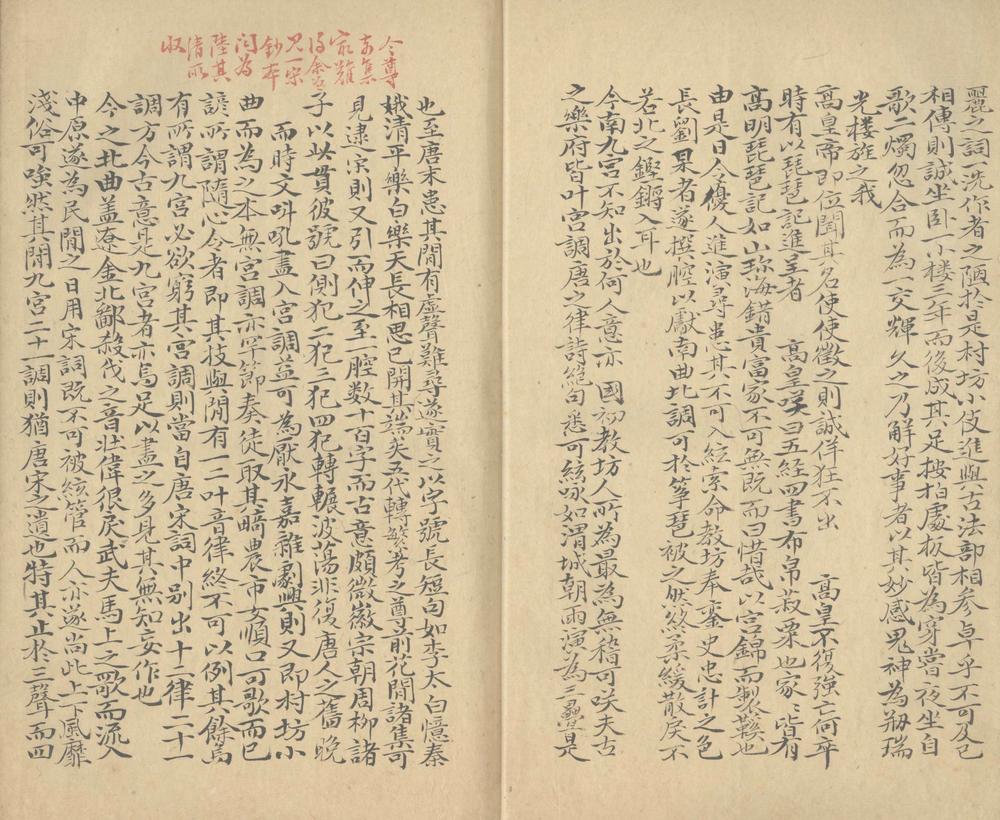 麗之詞洗作者之陋於是村坊小伎進與古法部相參卓乎不可及已
相傳則誠坐卧一小樓三年而後成其足按拍處板皆為穿嘗夜坐自
歌二燭忽合而為一交輝久之乃解好事者以其妙感鬼神為剏瑞
光樓旌之我
高皇帝即位聞其名使使徵之則誠佯狂不出　高皇不復強亡何卒
時有以琵琶記進呈者　高皇咲曰五經四書布帛菽粟也家〻皆有
高明琵琶記如山珍海錯貴富家不可無既而曰惜哉以宮錦而製鞵也
由是日令優人進演尋患其不可入絃索命教坊奉鑾史忠計之色
長劉杲者遂撰腔以獻南曲北調可於箏琶被之然終柔緩散戾不
若北之鏗鏘入耳也
今南九宮不知出於何人意亦　國初教坊人所為最為無稽可咲夫古
之樂府皆叶宮調唐之律詩絕句悉可絃咏如渭城朝雨演為三疊是
今尊
前集
㝡難
得余
見一宋
鈔本
為
陸其
清所
收
也至唐末患其間有虛聲難尋遂實之以字號長短句如李太白憶秦
娥清平樂白樂天長相思已開其端矣五代轉繁考之尊前花間諸集可
見逮宋則又引而伸之至腔数十百字而古意頗微徽宗朝周柳諸
子以此貫彼號曰側犯二犯三犯四犯轉輾波蕩非復唐人之舊晚
而時文呌吼盡入宮調益可為厭永嘉雜劇興則又即村坊小
曲而為之本無宮調亦罕節奏徒取其畸農市女順口可歌而已
諺所謂隨心令者即其技與閒有一二叶音律終不可以例其餘烏
有所謂九宮必欲窮其宮調則當自唐宋詞中別出十二律二十一
調方合古意是九宮者亦烏足以盡之多見其無知妄作也
今之北曲盖遼金北鄙殺伐之音壯偉很戾武夫馬上之歌而流入
中原遂為民間之日用宋詞既不可被絃管而人亦遂尚此上下風靡
淺俗可嗤然其間九宮二十一調則猶唐宋之遺也特其止於三聲而四